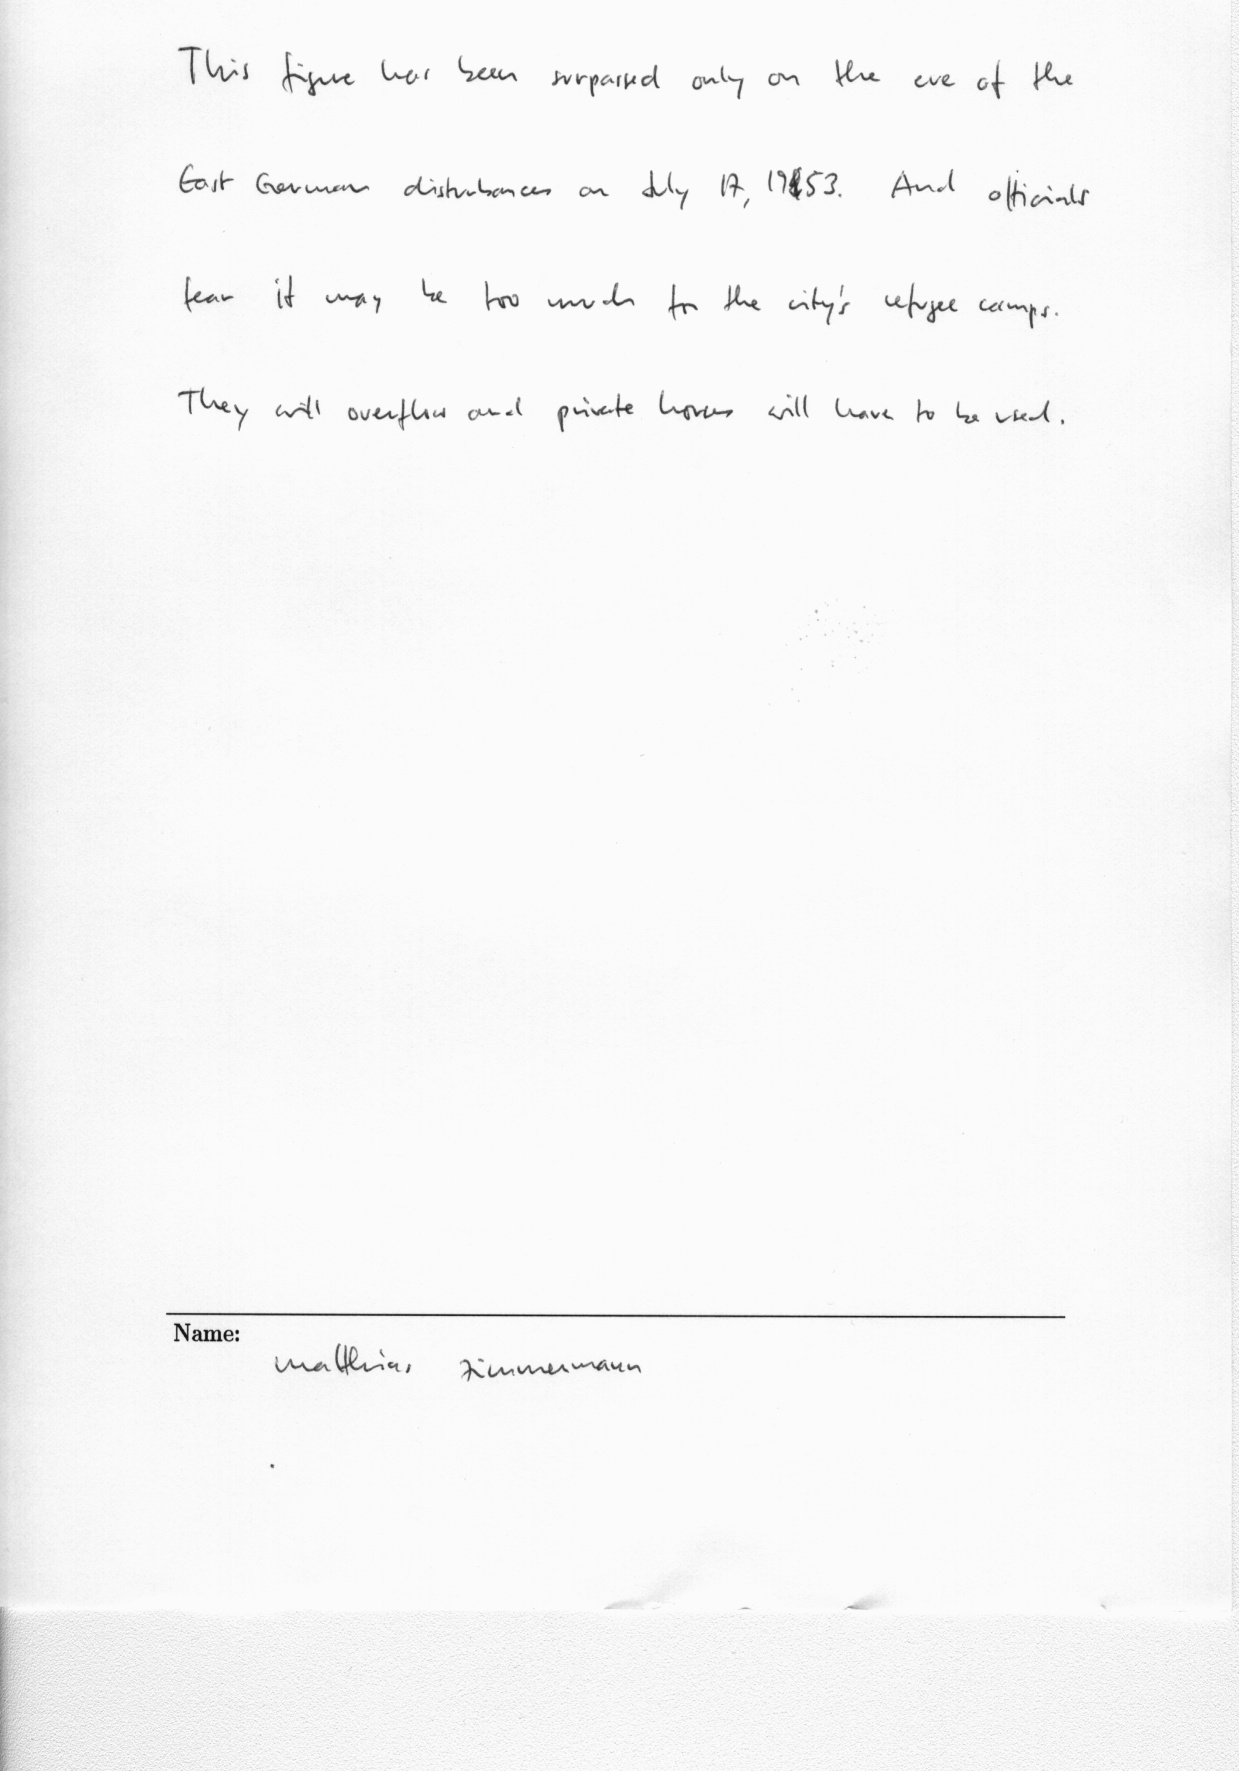 This figure has been surpassed only on the eve of the
East German disturbances on July 17, 1953. And officials
fear it may be too much for the city's refugee camps.
They will overflow and private houses will have to be used.
Name:
Matthias Zimmermann